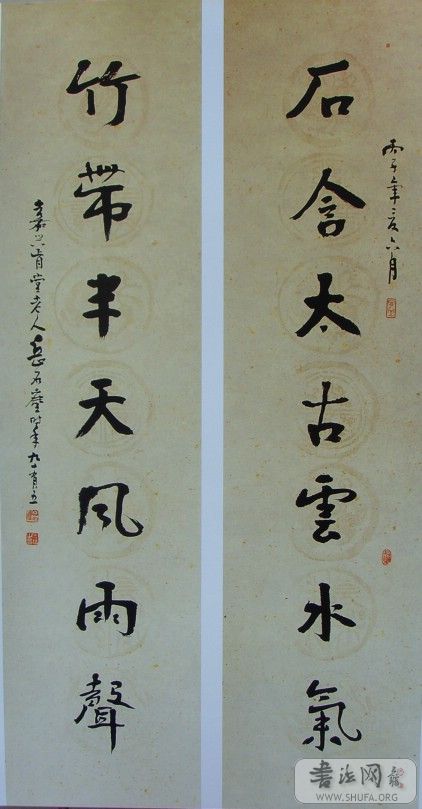 丙子年夏六月
石含太古雲水氣
竹帶半天風雨聲
嘉興堂老人岳石塵時年九十有五
書法网
WWW.SHUFA.ORG